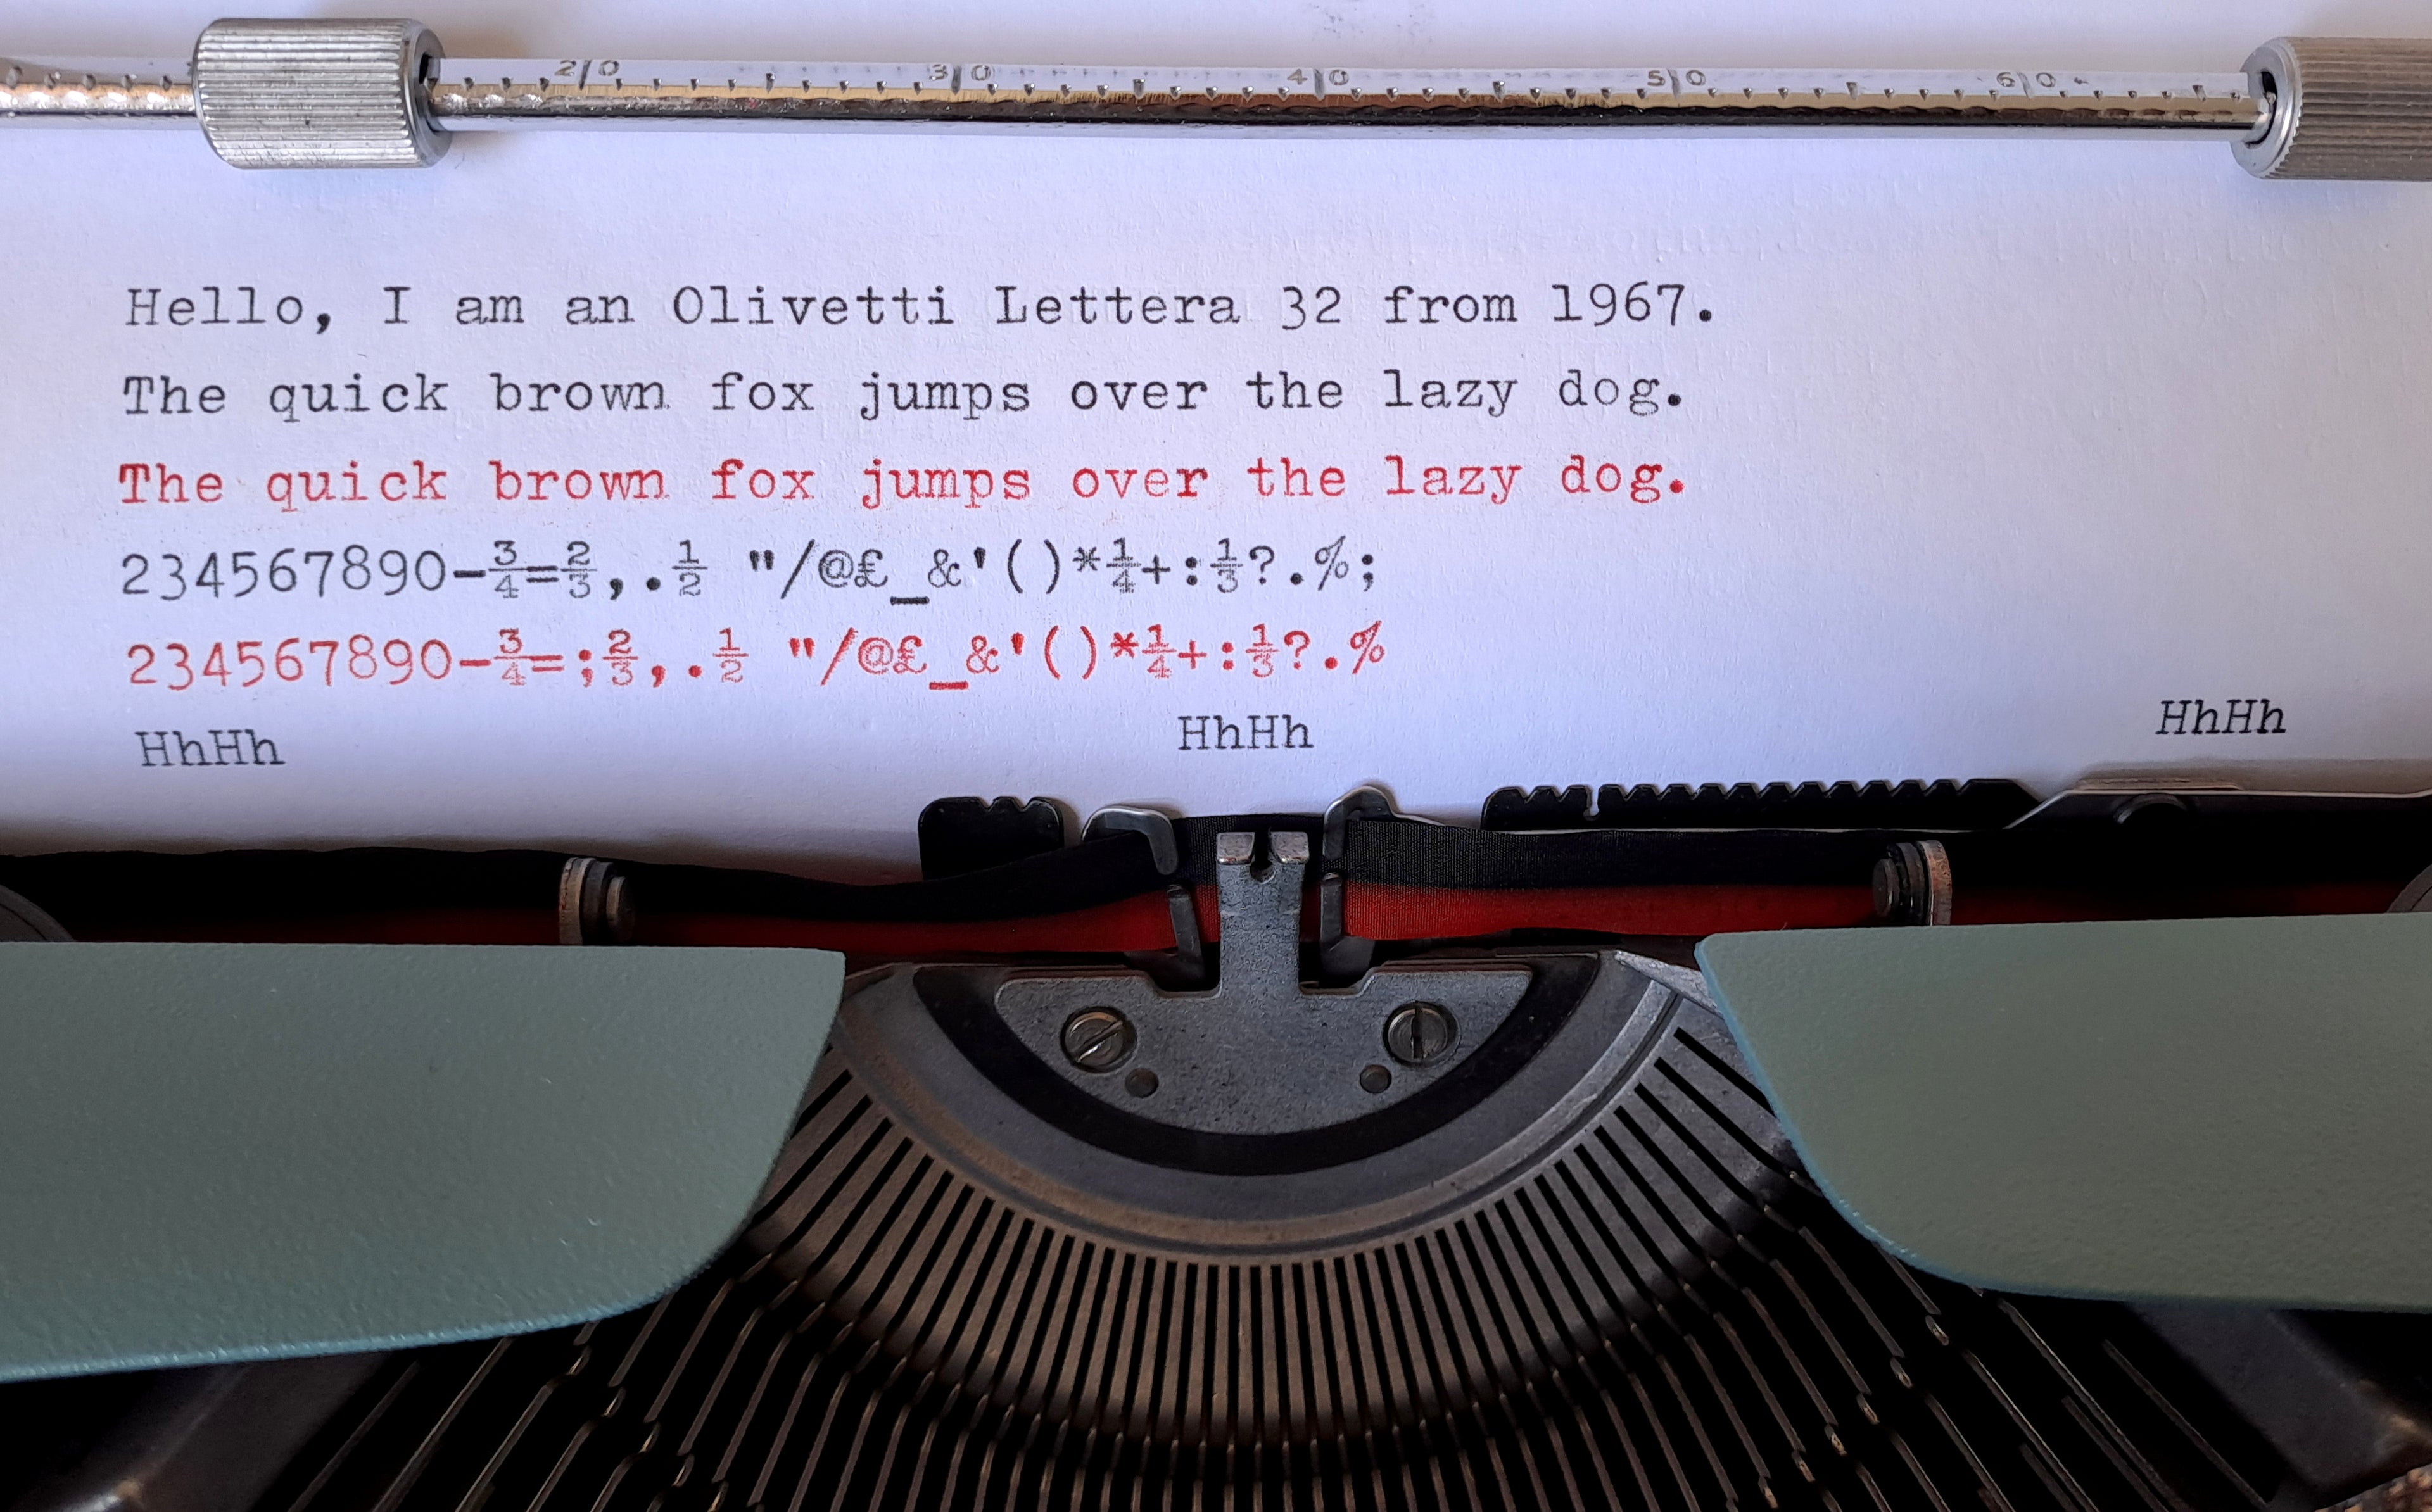 20 30 40 50 60
Hello, I am an Olivetti Lettera 32 from 1967.
The quick brown fox jumps over the lazy dog.
The quick brown fox jumps over the lazy dog.
234567890-¾=⅔,.½ "/@£_&'()*¼+:⅓?.%;
234567890-¾=;⅔,.½ "/@£_&'()*¼+:⅓?.%
HhHh HhHh HhHh